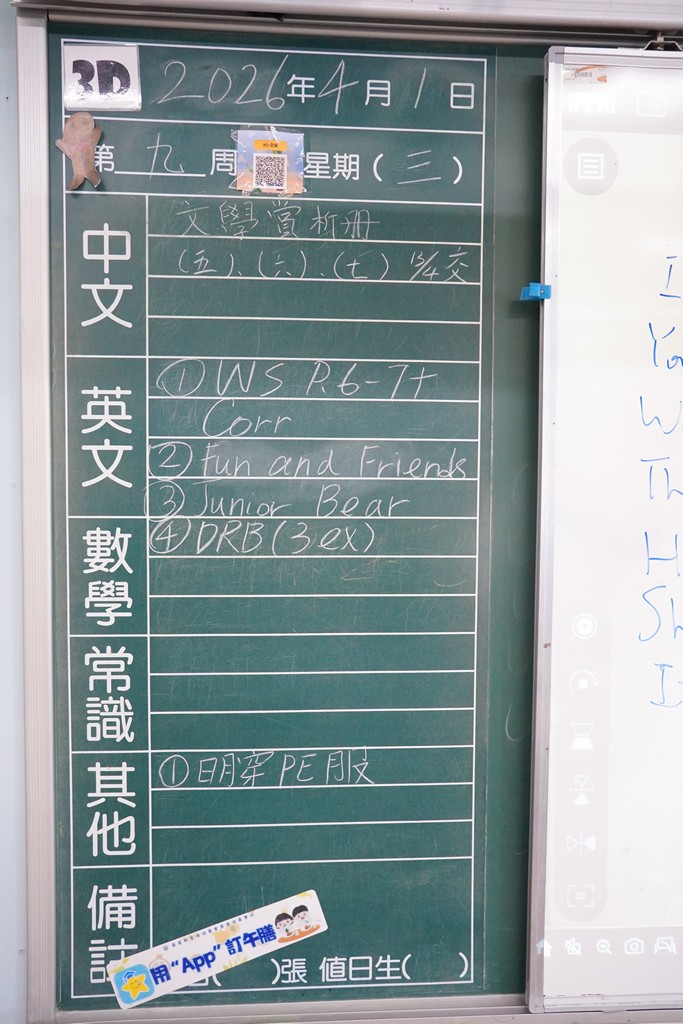 3D 2026年4月1日
第九周 星期(三)
中文
文學賞析冊
(五)、(六)、(七) 13/4交
英文
① WS P.6-7+
Corr
② Fun and Friends
③ Junior Bear
④ DRB (3 ex)
數學
常識
其他
① 明穿PE服
備註
用“App”訂午膳
( )張 值日生( )
I
Yo
W
Th
H
Sh
It